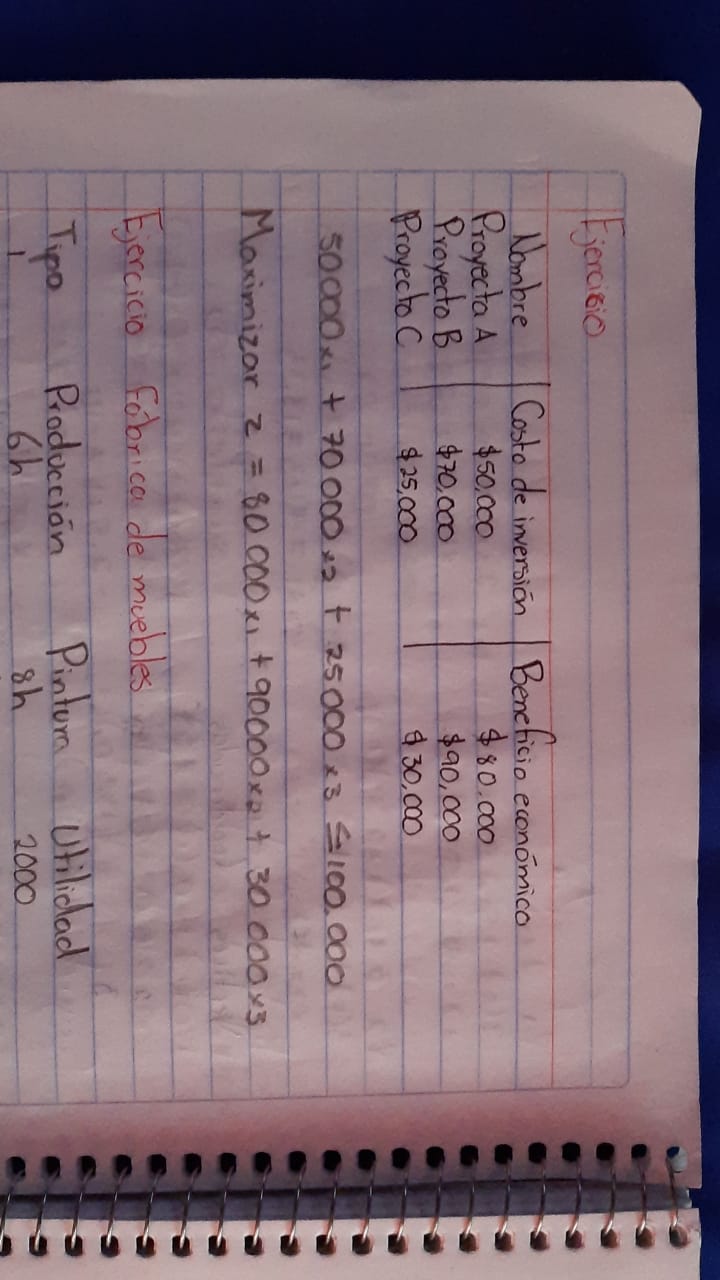 Ejercicio
Nombre Costo de inversión Beneficio económico
Proyecta A $50,000 $80.000
Proyecto B $70,000 $90,000
Proyecto C $25,000 $30,000
50000x1 + 70000x2 + 25000x3 ≤100.000
Maximizar z = 80 000x1 + 90000x2 + 30 000x3
Ejercicio Fábrica de muebles
Tipo Producción Pintura Utilidad
1 6h 8h 2000